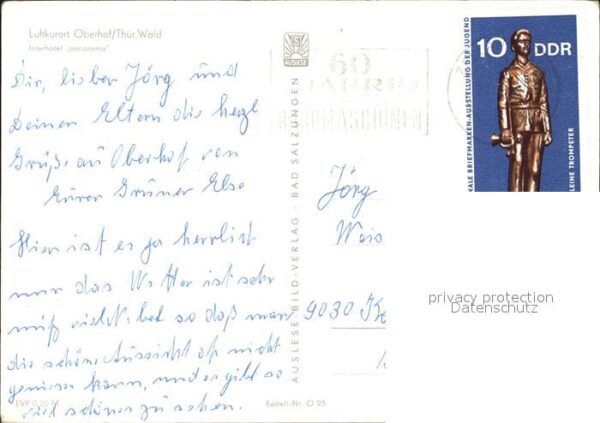 Luftkurort Oberhof/Thür. Wald
Interhotel „panorama"
Dir, lieber Jörg und
Deinen Eltern die herzl
Grüße aus Oberhof von
Eurer Grüner Else
Hier ist es ja herrlich
nur das Wetter ist sehr
so daß man
die schöne Aussicht oft nicht
genießen kann, und es gibt so
viel schönes zu sehen.
EVP 0,20 M
Bestell-Nr. O 95
AUSLESE-BILD-VERLAG · BAD SALZUNGEN
AUSLESE
60
JAHRE
BÜROMASCHINEN
10 DDR
NALE BRIEFMARKEN-AUSSTELLUNG DER JUGEND
KLEINE TROMPETER
Jörg
Weis
9030 K
privacy protection
Datenschutz